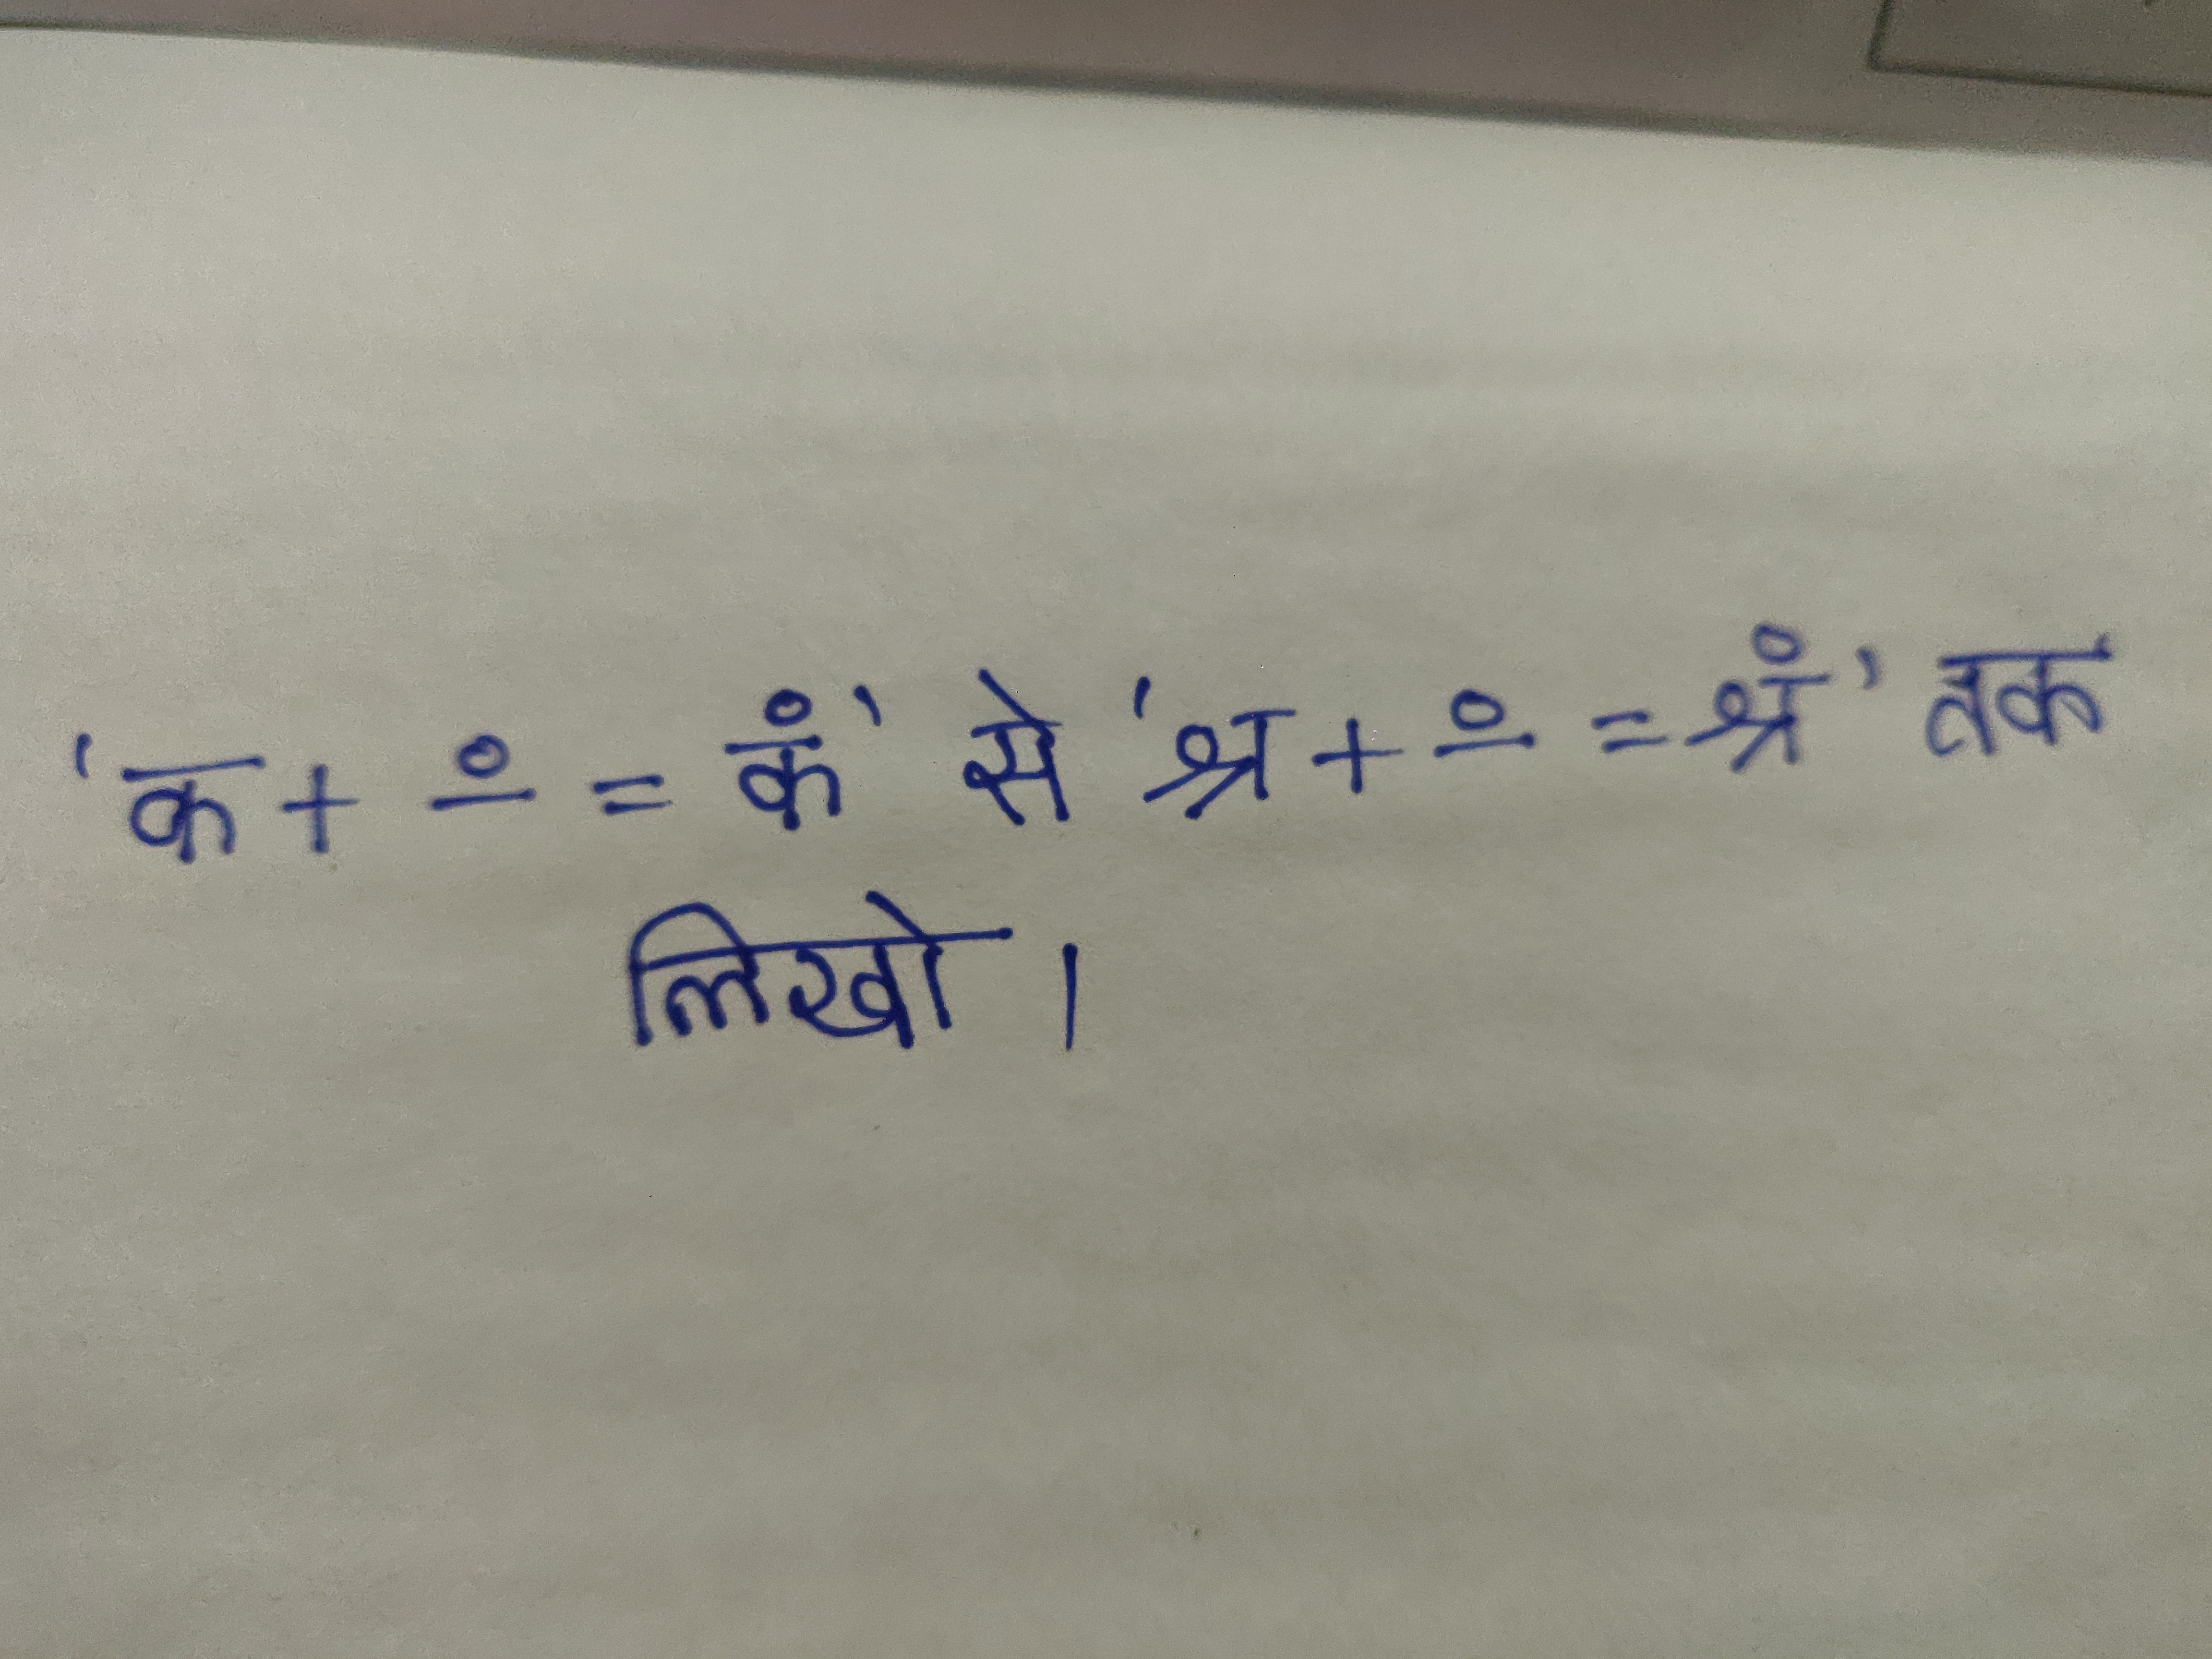 'क + ं = कं' से 'श्र + ं = श्रं' तक
लिखो ।